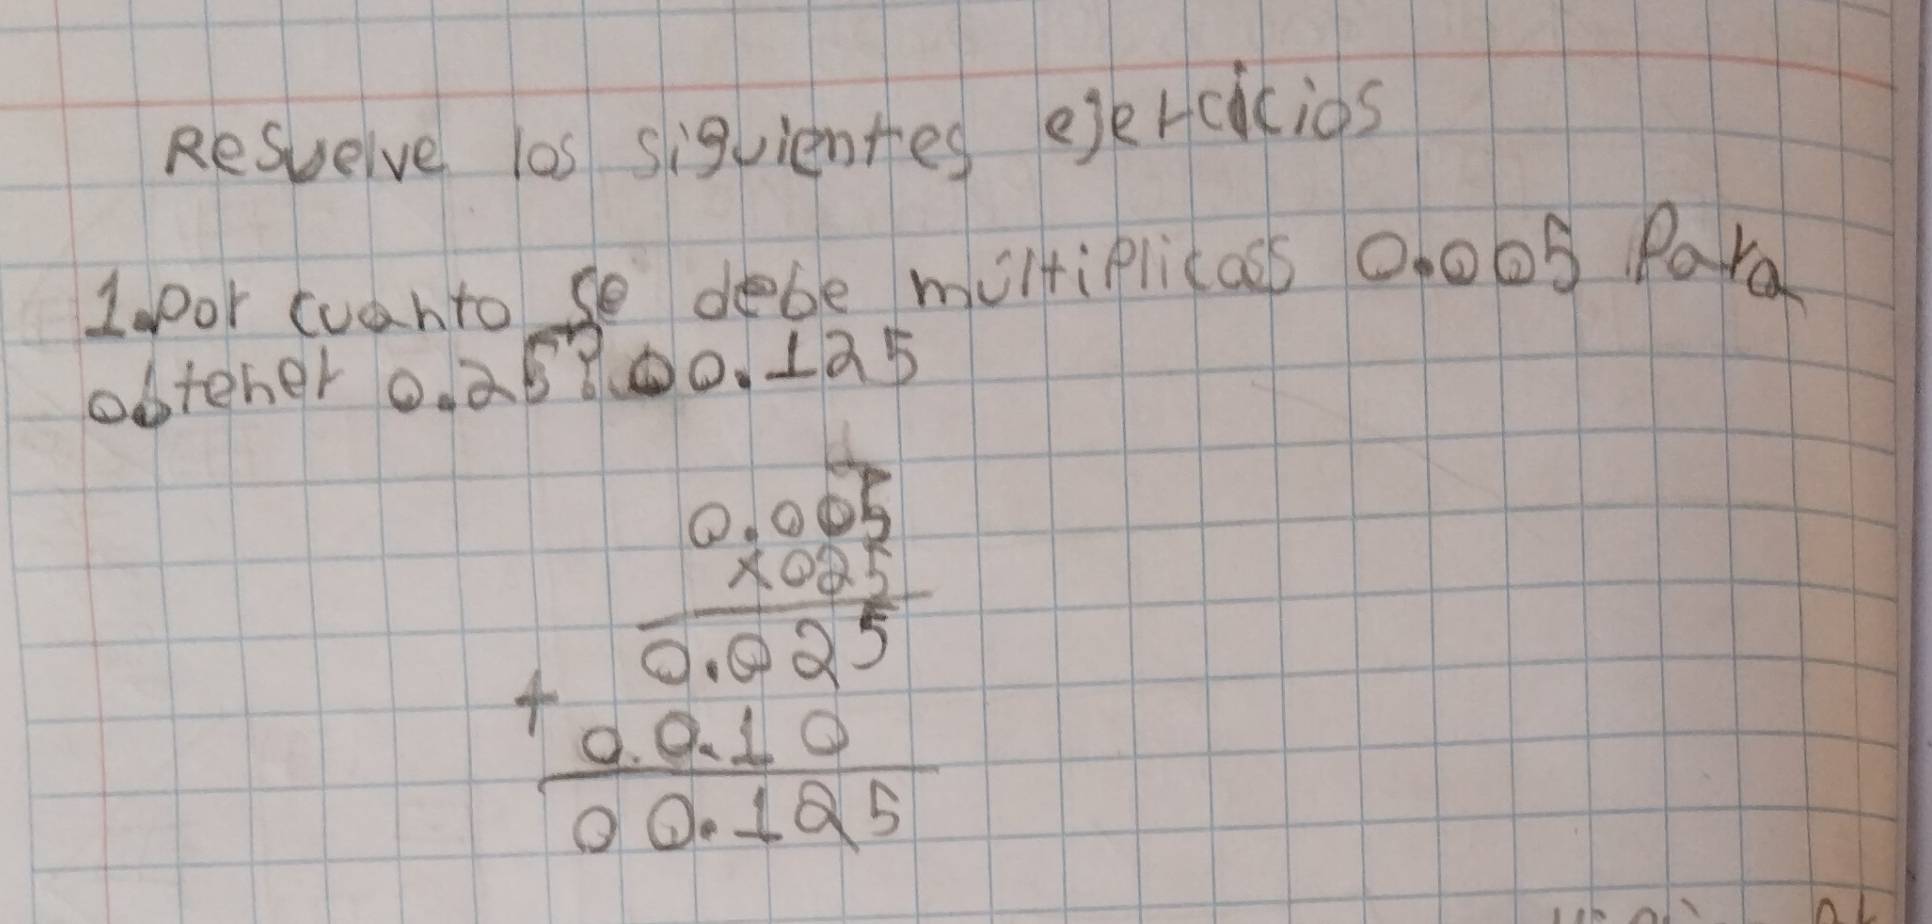 Resuelve los siguientes ejercicios
1.por cuanto se debe múltiplicass 0.005 Para
obtener 0.25? 00.125
0.005
x025
0.025
+ 0.0.10
00.125